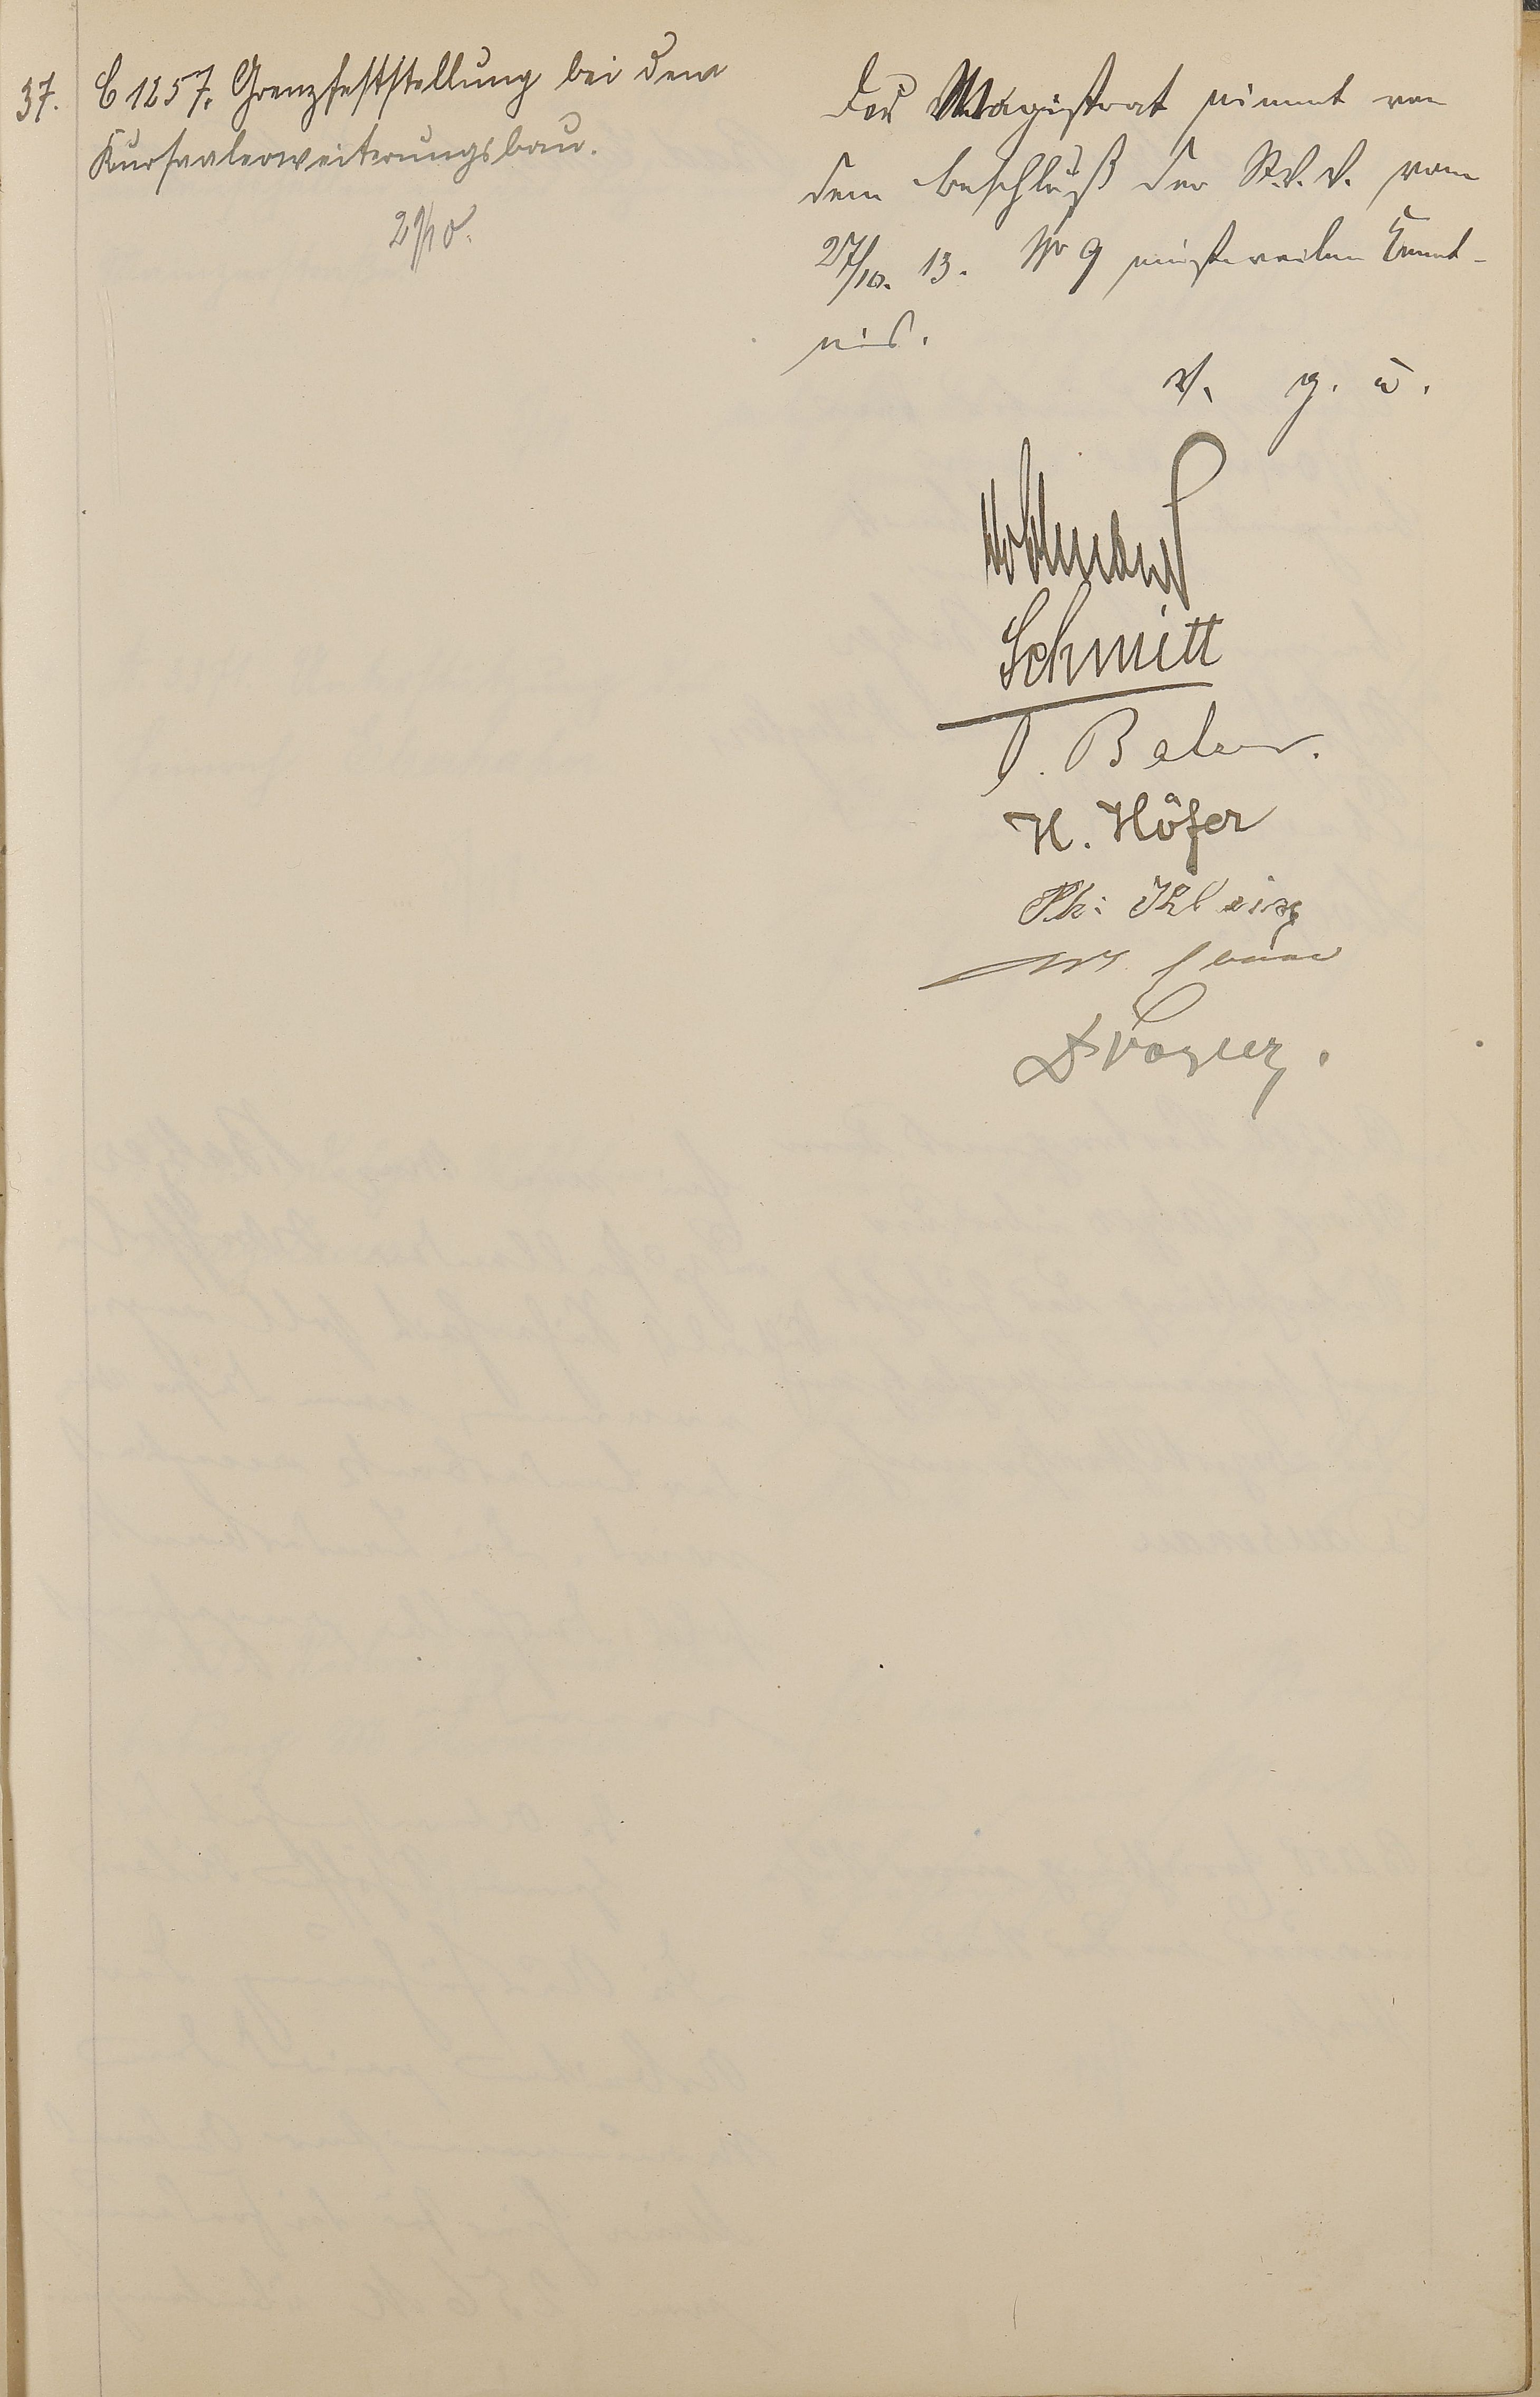 37. C 1257. Grenzfeststellung bei dem
Kursaalerweiterungsbau.
29/10.
Der Magistrat nimmt von
dem Beschluß der St. V. V. vom
27/10. 13. No 9 einstweilen Kennt-
nis.
V. g. u.
Schmitt
H. Höfer
Ph: Klein